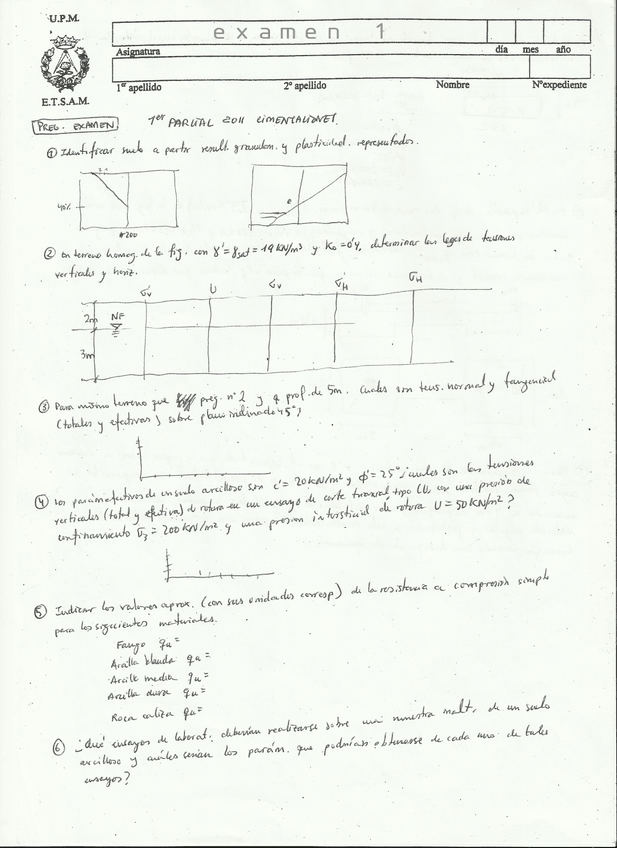 U.P.M.
examen 1
Asignatura
día mes año
1er apellido
2º apellido
Nombre
Nºexpediente
E.T.S.A.M.
PREG. EXAMEN
1er PARCIAL 2011 CIMENTACIONES.
① Identificar suelo a partir result. granulom. y plasticidad. representados.
40%
#200
e
② En terreno homog. de la fig. con γ' = γsat = 19 KN/m³ y K₀ = 0'4, determinar las leyes de tensiones
verticales y horiz.
σ'v U σv σ'H σH
2m NF
3m
③ Para mismo terreno que preg. nº 2 y a prof. de 5m. Cuales son tens. normal y tangencial
(totales y efectivas) sobre plano inclinado 45°?
④ Los parám efectivos de un suelo arcilloso son c' = 20 KN/m² y ϕ' = 25° ¿cuales son las tensiones
verticales (total y efectiva) de rotura en un ensayo de corte triaxial, tipo CU, con una presión de
confinamiento σ₃ = 200 KN/m² y una presion intersticial de rotura U = 50 KN/m²?
⑤ Indicar los valores aprox. (con sus unidades corresp) de la resistencia a compresión simple
para los siguientes materiales.
Fango qu =
Arcilla blanda qu =
Arcilla media qu =
Arcilla dura qu =
Roca caliza qu =
⑥ ¿Qué ensayos de laborat. deberían realizarse sobre una muestra inalt. de un suelo
arcilloso y cuáles serían los parám. que podrían obtenerse de cada uno de tales
ensayos?